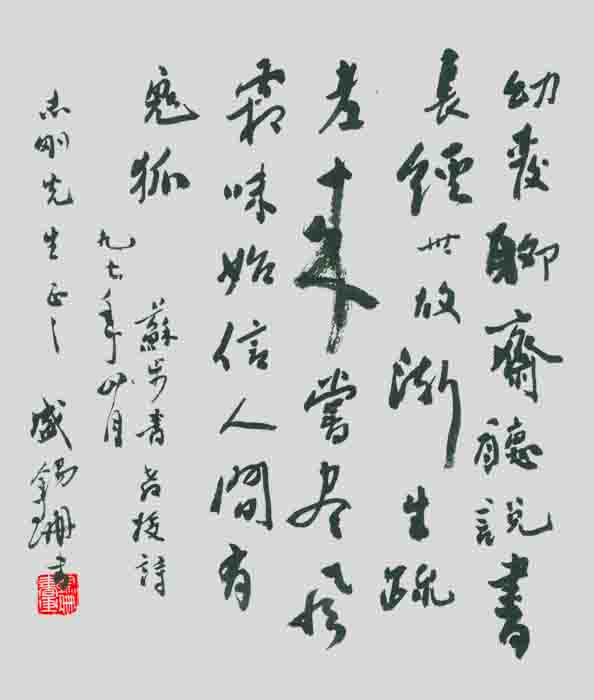 幼愛聊齋聽說書
長經世故漸生疏
老來嘗盡風
霜味始信人間有
鬼狐
蘇步青教授詩
九七年四月
志剛先生正之
盛錫珊書